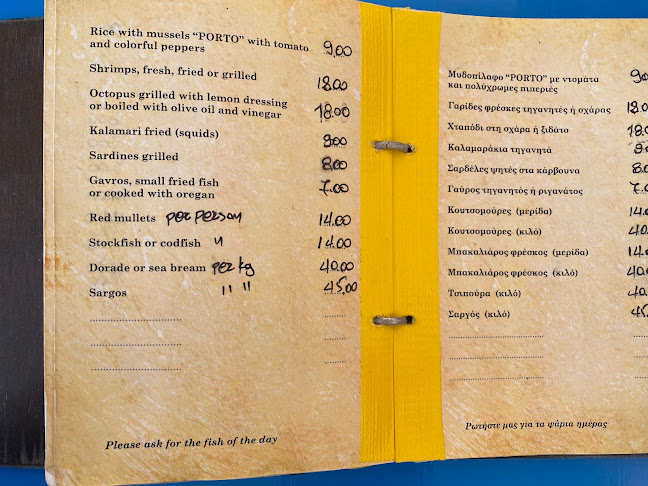 Rice with mussels “PORTO” with tomato
and colorful peppers 9,00
Shrimps, fresh, fried or grilled 18.00
Octopus grilled with lemon dressing
or boiled with olive oil and vinegar 18.00
Kalamari fried (squids) 9.00
Sardines grilled 8.00
Gavros, small fried fish
or cooked with oregan 7.00
Red mullets per person 14.00
Stockfish or codfish " 14.00
Dorade or sea bream per kg 40.00
Sargos " " 45.00
Please ask for the fish of the day
Μυδοπίλαφο “PORTO” με ντομάτα
και πολύχρωμες πιπεριές
Γαρίδες φρέσκες τηγανητές ή σχάρας
Χταπόδι στη σχάρα ή ξιδάτο
Καλαμαράκια τηγανητά
Σαρδέλες ψητές στα κάρβουνα
Γαύρος τηγανητός ή ριγανάτος
Κουτσομούρες (μερίδα)
Κουτσομούρες (κιλό)
Μπακαλιάρος φρέσκος (μερίδα)
Μπακαλιάρος φρέσκος (κιλό)
Τσιπούρα (κιλό)
Σαργός (κιλό)
Ρωτήστε μας για τα ψάρια ημέρας